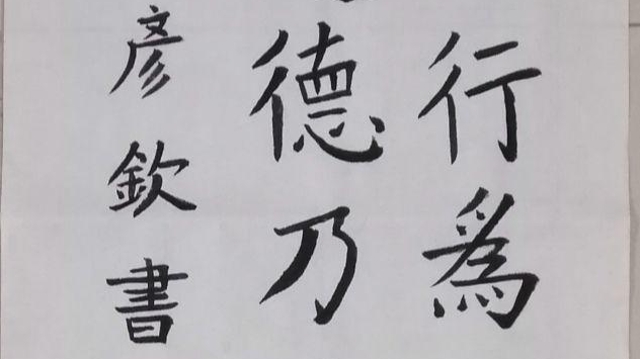 行為
德乃
彥欽書